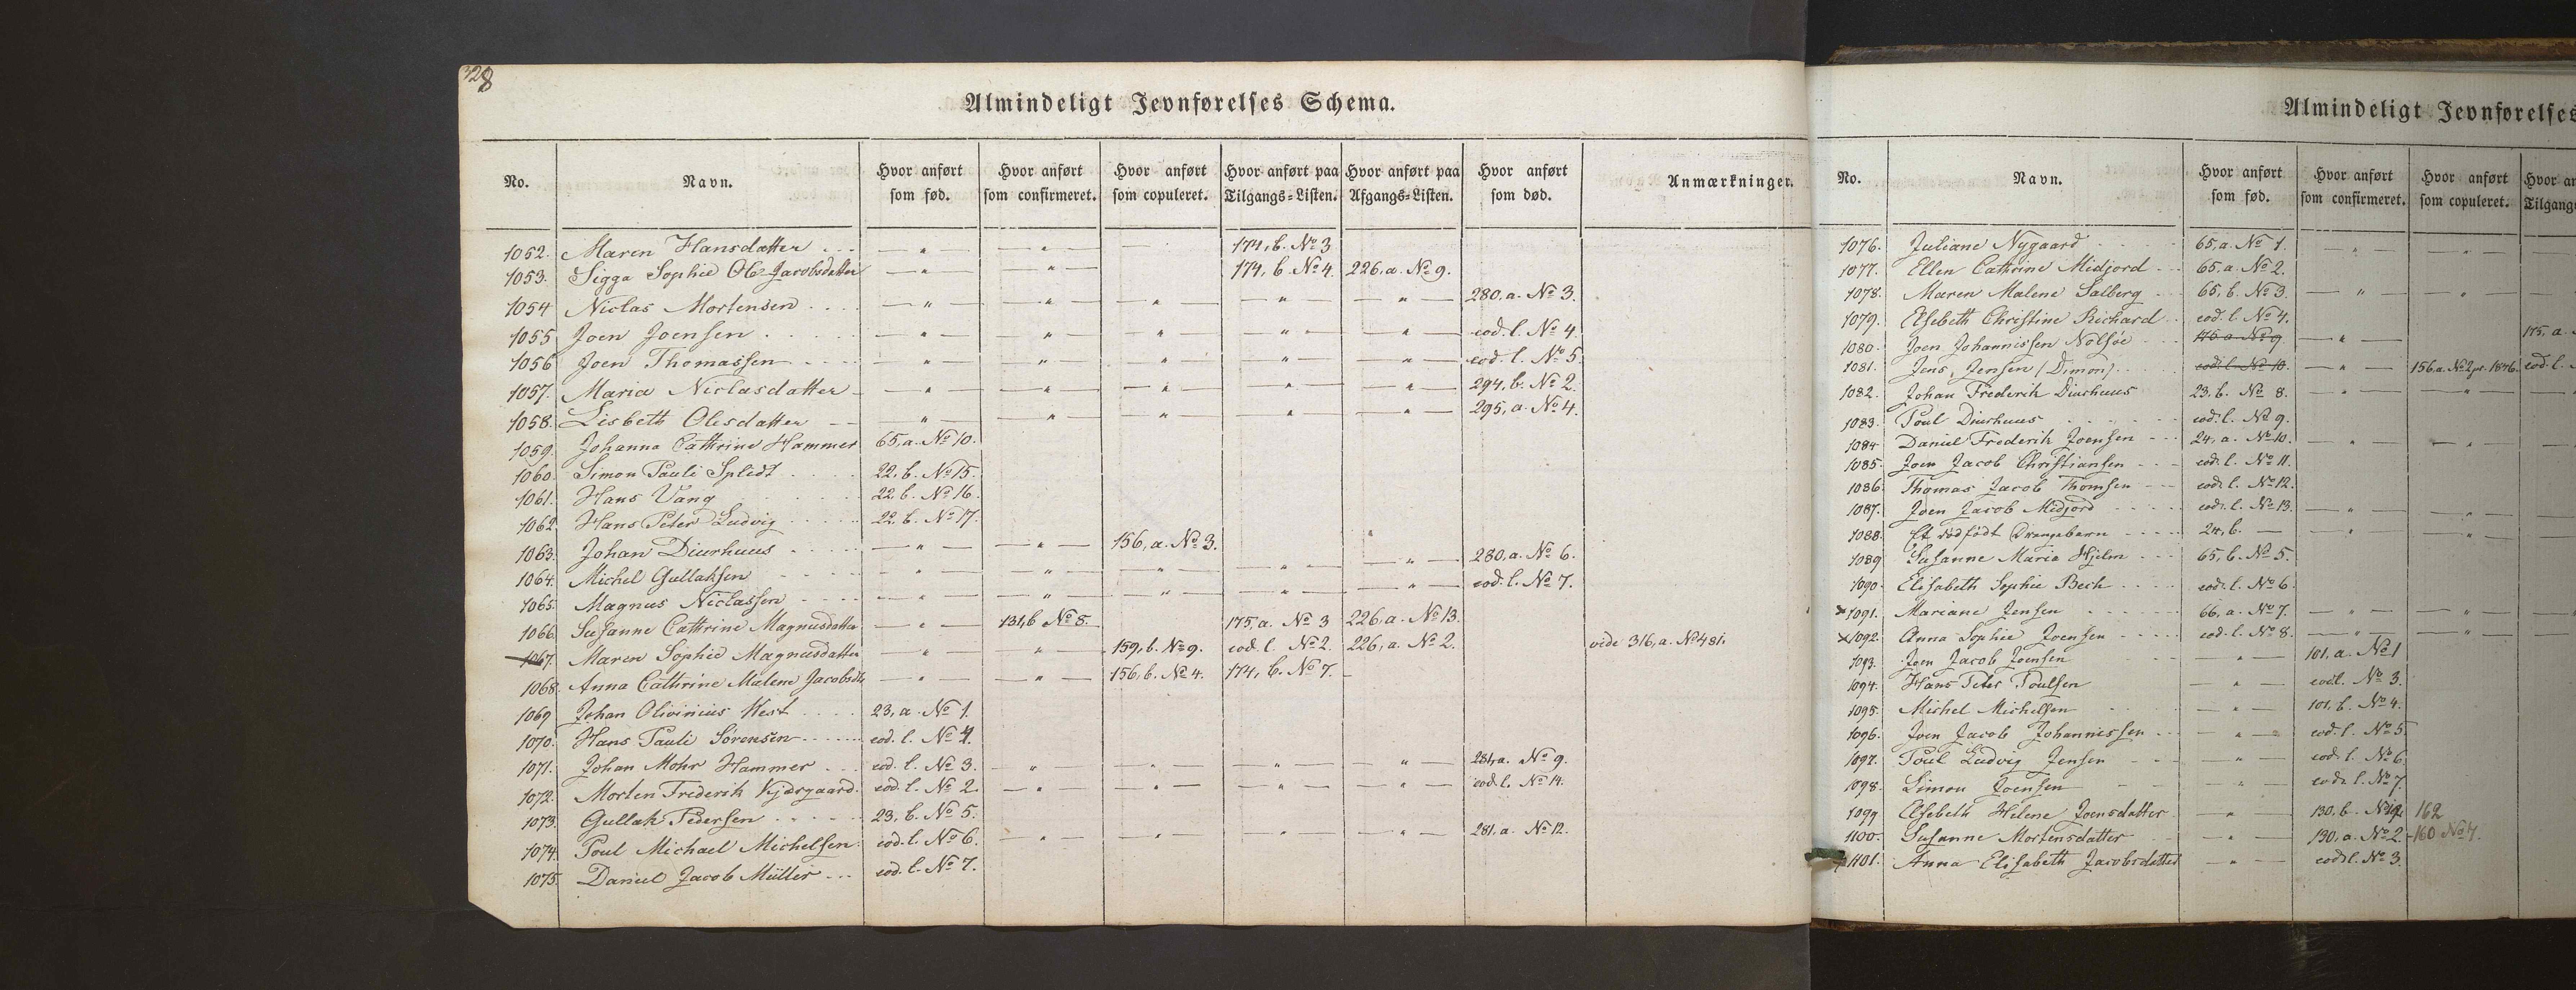 328
Almindeligt Jevnførelses Schema.
No. Navn. Hvor anført som fød. Hvor anført som confirmeret. Hvor anført som copuleret. Hvor anført paa Tilgangs=Listen. Hvor anført paa Afgangs=Listen. Hvor anført som død. Anmærkninger.
1052. Maren Hansdatter — " — — " — — 174, b. No 3
1053. Sigga Sophie Ole Jacobsdatter — " — — " — 174, b. No 4. 226, a. No 9.
1054 Niclas Mortensen — " — — " — — " — — " — — " — 280. a. No 3.
1055 Joen Joensen — " — — " — — " — — " — — " — eod. l. No 4.
1056 Joen Thomassen — " — — " — — " — — " — — " — eod. l. No 5.
1057. Maria Niclasdatter — " — — " — — " — — " — — " — 294, b. No 2.
1058. Lisbeth Olesdatter — " — — " — — " — — " — — " — 295, a. No 4.
1059. Johanna Cathrine Hammer 65, a. No 10.
1060. Simon Pauli Splidt 22. b. No 15.
1061. Hans Vang 22. b. No 16.
1062. Hans Peter Ludvig 22. b. No 17.
1063. Johan Diurhuus — " — — " — 156, a. No 3. "
1064. Michel Gullaksen — " — — " — — " — — " — — " — 280. a. No 6.
1065. Magnus Niclassen — " — — " — — " — — " — — " — eod. l. No 7.
1066. Susanne Cathrine Magnusdatter — " — 131, b No 8. 175, a. No 3 226. a. No 13.
1067. Maren Sophie Magnusdatter — " — — " — 159, b. No 9. eod. l. No 2. 226, a. No 2. vide 316, a. No 481.
1068. Anna Cathrine Malene Jacobsdtr — " — — " — 156, b. No 4. 174, b. No 7. —
1069 Johan Olivinius West 23, a. No 1.
1070. Hans Pauli Sørensen eod. l. No 4.
1071. Johan Mohr Hammer eod. l. No 3. — " — — " — — " — — " — 281, a. No 9.
1072. Morten Frederik Kjærgaard. eod. l. No 2. — " — — " — — " — — " — eod. l. No 14.
1073. Gullak Pedersen 23, b. No 5.
1074. Poul Michael Michelsen eod. l. No 6. — " — — " — — " — — " — 281, a. No 12.
1075. Daniel Jacob Müller eod. l. No 7.
Almindeligt Jevnførelses
No. Navn. Hvor anført som fød. Hvor anført som confirmeret. Hvor anført som copuleret. Hvor an Tilgangs
1076. Juliane Nygaard 65, a. No 1. — " — — " —
1077. Ellen Cathrine Midjord 65. a. No 2.
1078. Maren Malene Salberg 65, b. No 3. — " — — " —
1079. Elsebeth Christine Richard eod. l. No 4.
1080. Joen Johannissen Nolsöe 175 a No 9 — " — 175, a.
1081. Jens Jensen (Dimon) eod. l. No 10. — " — 156. a. No 2 pr. 1846. eod. l.
1082. Johan Frederik Diurhuus 23. b. No 8. — " — — " —
1083. Poul Diurhuus eod. l. No 9.
1084 Daniel Frederik Joensen 24, a. No 10. — " — — " —
1085. Joen Jacob Christiansen eod. l. No 11.
1086. Thomas Jacob Thomsen eod. l. No 12.
1087. Joen Jacob Midjord eod. l. No 13. — " — — " —
1088. Et dødfödt Drengebarn 24, b. — — " — — " —
1089 Susanne Maria Hjelm 65, b. No 5.
1090. Elisabeth Sophie Bech eod. l. No 6.
×1091. Mariane Jensen 66, a. No 7. — " — — " —
×1092. Anna Sophie Joensen eod. l. No 8. — " — — " —
1093. Joen Jacob Joensen — " — 101, a. No 1
1094. Hans Peter Poulsen — " — eod l. No 3.
1095. Michel Michelsen — " — 101, b. No 4.
1096. Joen Jacob Johannissen — " — eod. l. No 5.
1097. Poul Ludvig Jensen — " — eod. l. No 6
1098. Simon Joensen — " — eod. l. No 7.
1099 Elsebeth Helene Joensdatter — " — 130, b. 162
1100. Susanne Mortensdatter — " — 130, a. No 2. 160 No 4.
×1101. Anna Elisabeth Jacobsdatter — " — eod l. No 3.